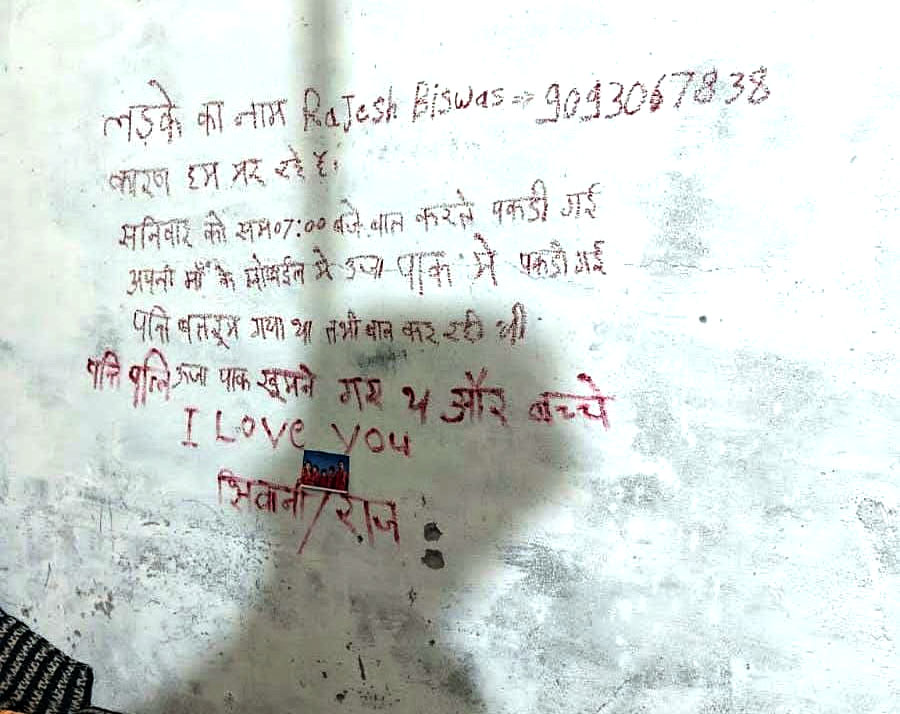 लड़के का नाम RaJesh Biswas => 9093067838
कारण हम मर रहे है।
सनिवार को सम07:00 बजे बात करते पकडी गई
अपनी माँ के मोबाईल मे उर्जा पार्क मे पकडी गई
पति बातरूम गया था तभी बात कर रही थी
पति पत्नि ऊर्जा पाक घूमने गए थ और बच्चे
I Love you
शिवानी/राज